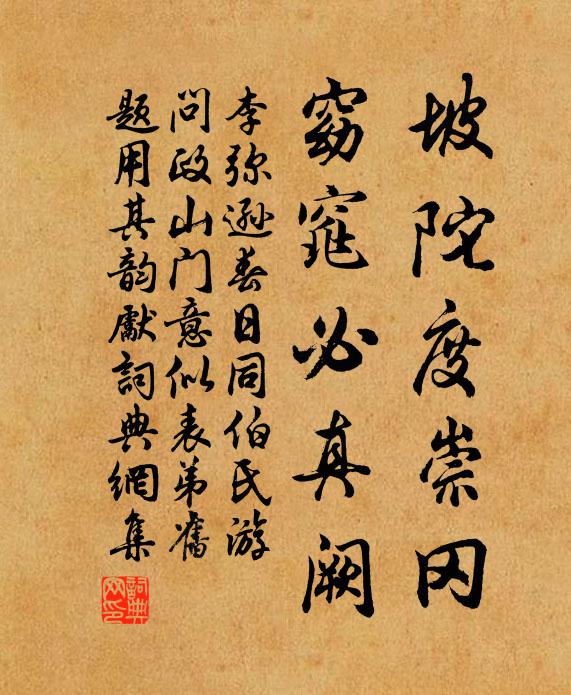 坡陀度崇冈
窈窕必真阙
李弥逊春日同伯氏游
问政山门意似表弟旧
题用其韵献詞典網集
詞典
网印